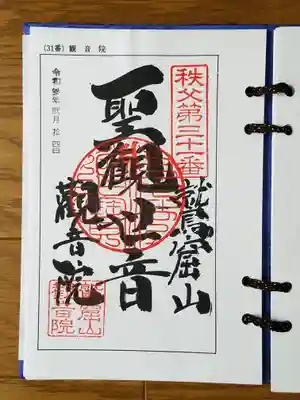 (31番) 観音院
秩父第三十一番
鷲窟山
聖觀世音
觀音院
令和 年 弐月 拾四日
鷲窟山
観音院